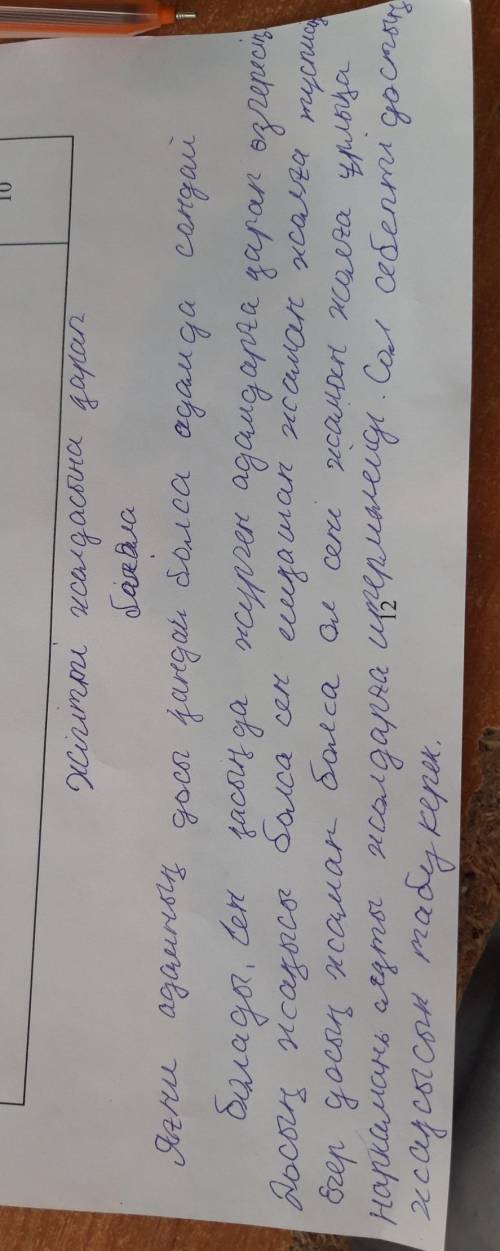 10
Жігітті жолдасына қарап
бағала
Яғни адамның досы қандай болса адамда сондай
болады. Сен қасыңда жүрген адамдарға қарап өзгересің
Досың жақсы болса сен ешқашан жаман жолға түспейсің
Егер досың жаман болса ол сені жаман жолға ұрлыққа
наркомань сяқты жолдарға итермелейді. Сол себепті достың
жақсысын табу керек.
12